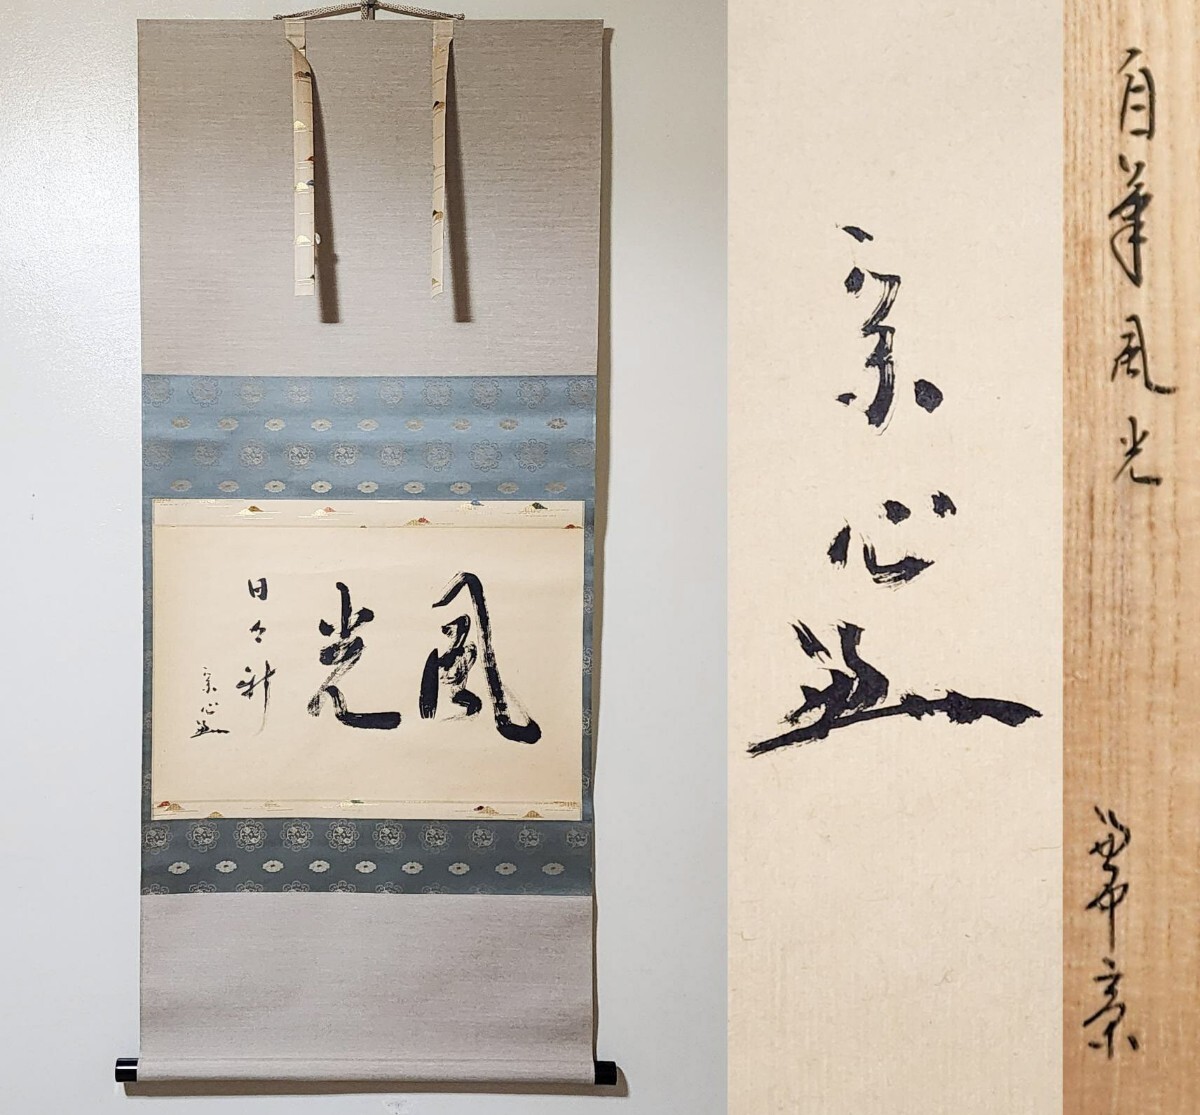 風光
日々新
宗心
宗心
自筆風光
兼中斎